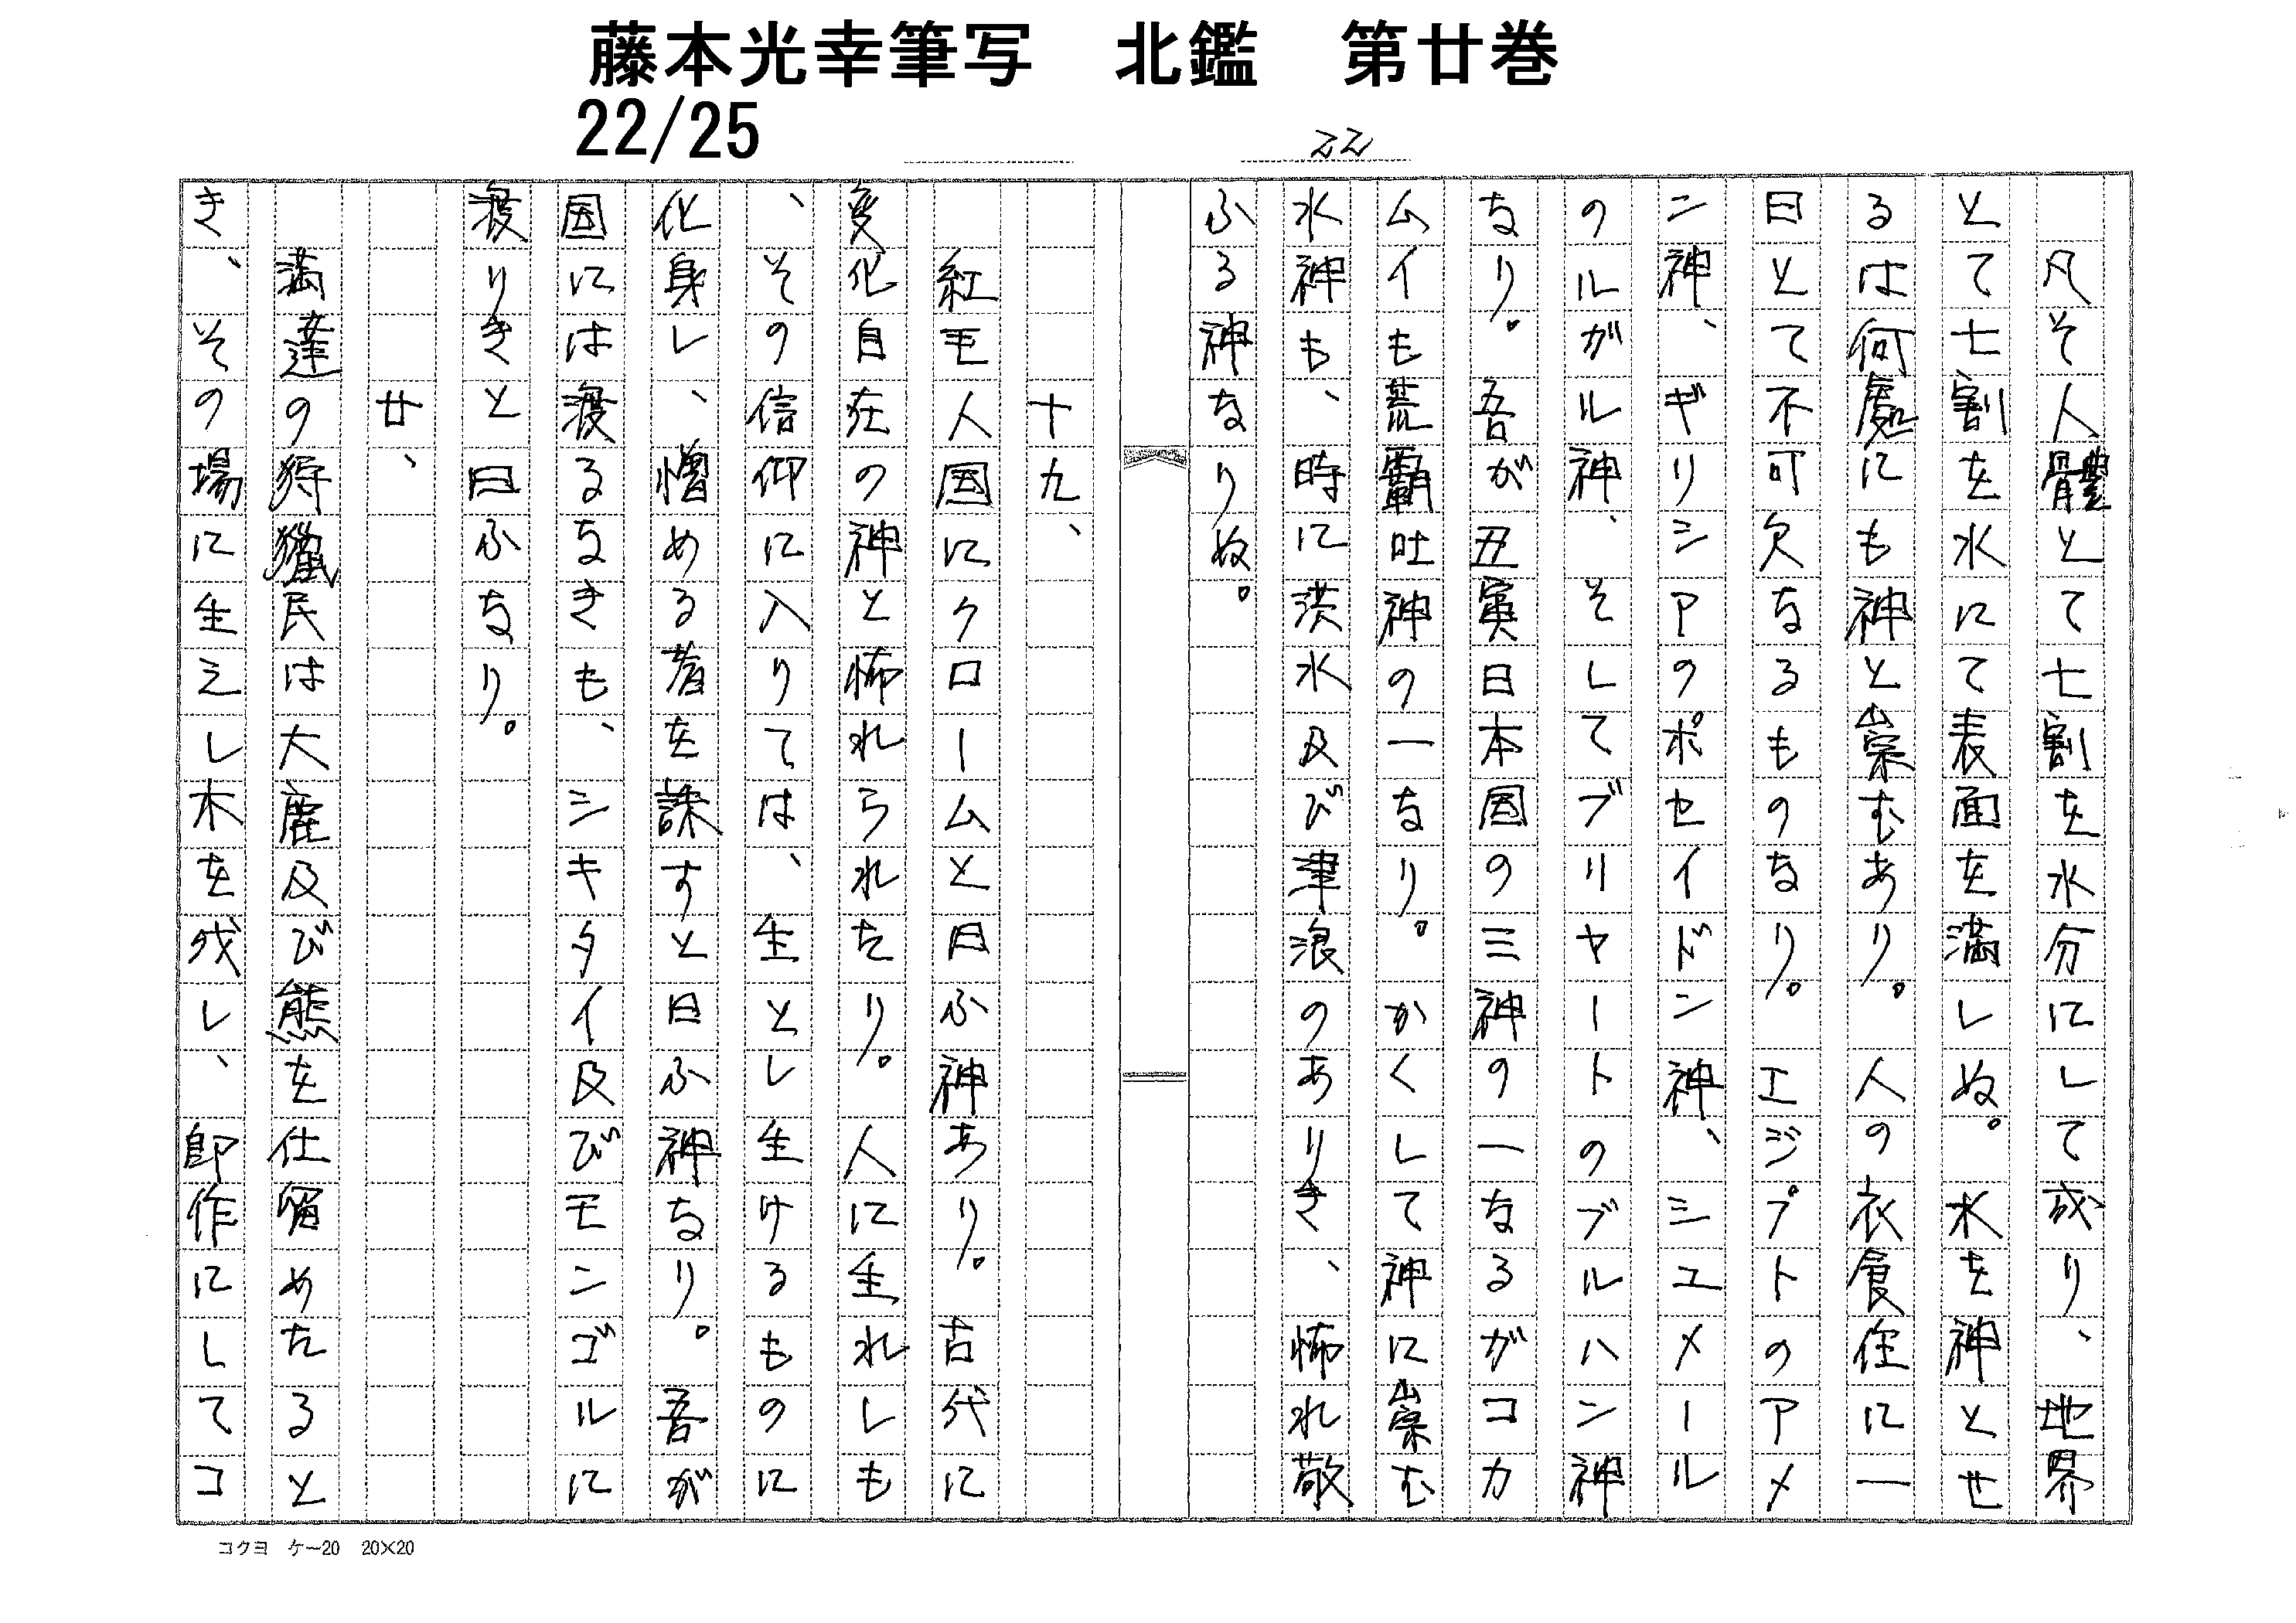 藤本光幸筆写　北鑑　第廿巻
22/25
22
凡そ人體とて七割を水分にして成り、地界
とて七割を水にて表面を満しぬ。水を神とせ
るは何處にも神と崇むあり。人の衣食住に一
日とて不可欠なるものなり。エジプトのアメ
ン神、ギリシアのポセイドン神、シユメール
のルガル神、そしてブリヤートのブルハン神
なり。吾が丑寅日本国の三神の一なるがコカ
ムイも荒覇吐神の一なり。かくして神に崇む
水神も、時に洪水及び津浪のありき、怖れ敬
ふる神なりぬ。
十九、
紅毛人国にクロームと曰ふ神あり。古代に
変化自在の神と怖れられたり。人に生れしも
、その信仰に入りては、生とし生けるものに
化身し、憎める者を誅すと曰ふ神なり。吾が
国には渡るなきも、シキタイ及びモンゴルに
渡りきと曰ふなり。
廿、
満達の狩猟民は大鹿及び熊を仕留めたると
き、その場に生えし木を伐し、即作にしてコ
コクヨ　ケー20　20×20